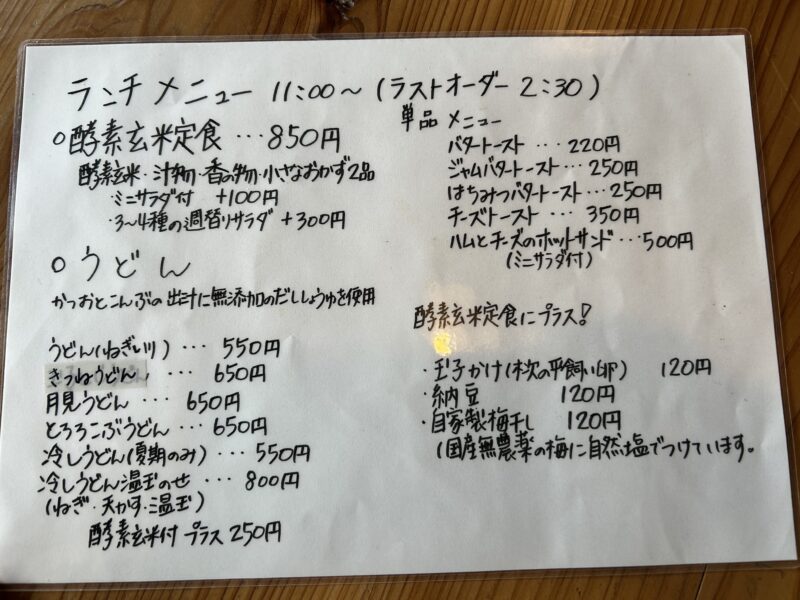 ランチメニュー 11:00〜(ラストオーダー 2:30)
○酵素玄米定食 ・・・ 850円
酵素玄米・汁物・香の物・小さなおかず2品
・ミニサラダ付 +100円
・3〜4種の週替りサラダ +300円
○うどん
かつおとこんぶの出汁に無添加のだししょうゆを使用
うどん(ねぎ) ・・・ 550円
きつねうどん ・・・ 650円
月見うどん ・・・ 650円
とろろこぶうどん ・・・ 650円
冷しうどん(夏期のみ) ・・・ 550円
冷しうどん温玉のせ ・・・ 800円
(ねぎ・天かす・温玉)
酵素玄米付 プラス 250円
単品 メニュー
バタートースト ・・・ 220円
ジャムバタートースト ・・・ 250円
はちみつバタートースト ・・・ 250円
チーズトースト ・・・ 350円
ハムとチーズのホットサンド ・・・ 500円
(ミニサラダ付)
酵素玄米定食にプラス!
・玉子かけ(の平飼い卵) 120円
・納豆 120円
・自家製梅干し 120円
(国産無農薬の梅に自然塩でつけています。